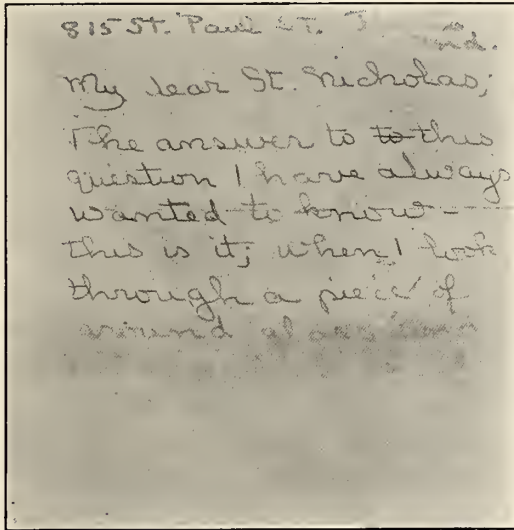 815 St. Paul St.
My dear St. Nicholas;
The answer to to this
question I have always
wanted to know-
this is it; when I look
through a piece of